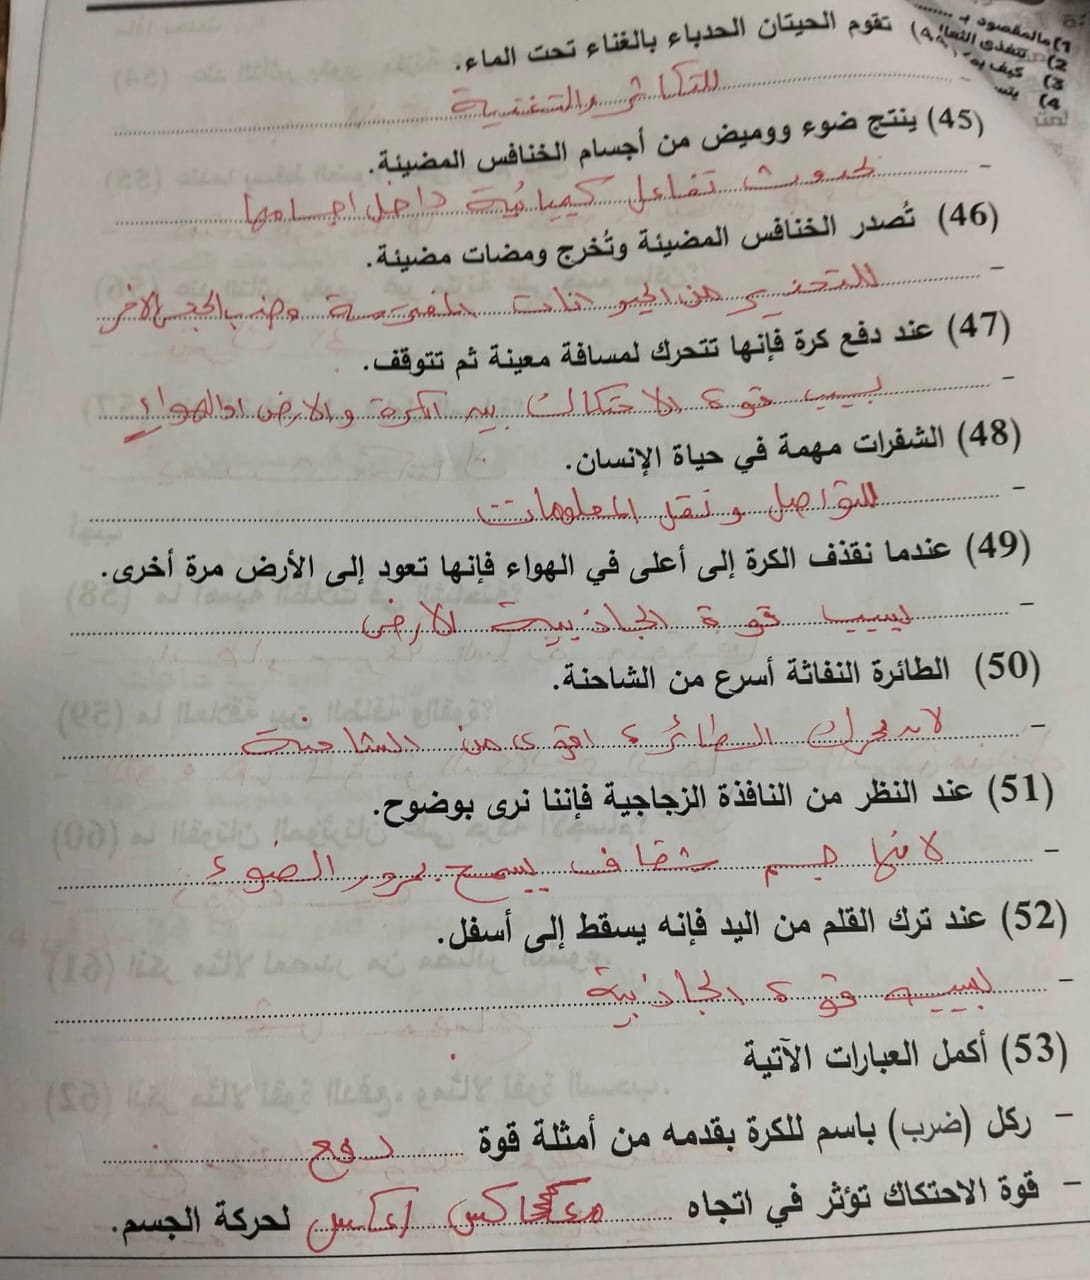 1) مالمقصود بـ
2) تتغذى الثعا
3) كيف يم
4) يتس
تقوم الحيتان الحدباء بالغناء تحت الماء.
- للتكاثر والتغذية
(45) ينتج ضوء ووميض من أجسام الخنافس المضيئة.
- لحدوث تفاعل كيميائية داخل اجسامها
(46) تُصدر الخنافس المضيئة وتُخرج ومضات مضيئة.
- للتحذير من الحيوانات المفترسة وجذب الجنس الاخر
(47) عند دفع كرة فإنها تتحرك لمسافة معينة ثم تتوقف.
- بسبب قوة الاحتكاك بين الكرة والارض او الهواء
(48) الشفرات مهمة في حياة الإنسان.
- للتواصل ونقل المعلومات
(49) عندما نقذف الكرة إلى أعلى في الهواء فإنها تعود إلى الأرض مرة أخرى.
- بسبب قوة الجاذبية الارض
(50) الطائرة النفاثة أسرع من الشاحنة.
- لان محرك الطائرة اقوى من الشاحنة
(51) عند النظر من النافذة الزجاجية فإننا نرى بوضوح.
- لانها جسم شفاف يسمح بمرور الضوء
(52) عند ترك القلم من اليد فإنه يسقط إلى أسفل.
- بسبب قوة الجاذبية
(53) أكمل العبارات الآتية
- ركل (ضرب) باسم للكرة بقدمه من أمثلة قوة دفع
- قوة الاحتكاك تؤثر في اتجاه معاكس / عكس لحركة الجسم.